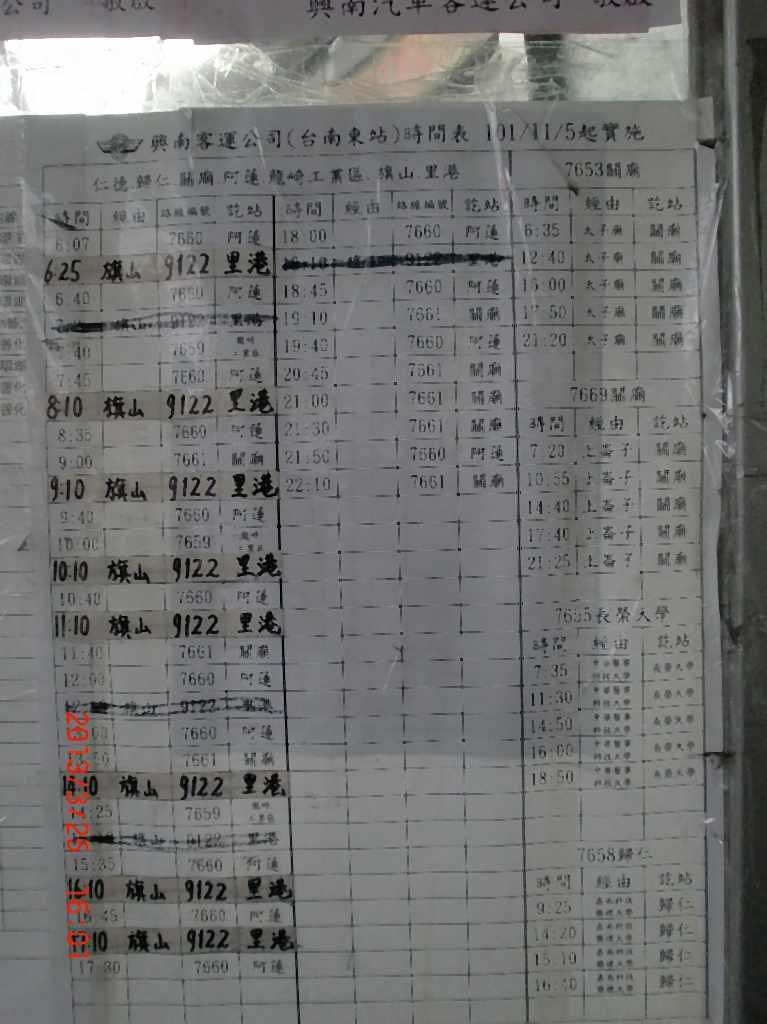 公司 敬啟 興南汽車客運公司 敬啟
興南客運公司(台南東站)時間表 101/11/5起實施
仁德.歸仁.關廟.阿蓮.龍崎工業區.旗山.里港
時間 經由 路線編號 訖站
6:07 7660 阿蓮
6:25 旗山 9122 里港
6:40 7660 阿蓮
旗山 9122 里港
40 7659 龍崎工業區
7:45 7660 阿蓮
8:10 旗山 9122 里港
8:35 7660 阿蓮
9:00 7661 關廟
9:10 旗山 9122 里港
9:40 7660 阿蓮
10:00 7659 龍崎工業區
10:10 旗山 9122 里港
10:40 7660 阿蓮
11:10 旗山 9122 里港
11:40 7661 關廟
12:00 7660 阿蓮
旗山 9122 里港
00 7660 阿蓮
7661 關廟
14:10 旗山 9122 里港
14:25 7659 龍崎工業區
旗山 9122 里港
15:35 7660 阿蓮
16:10 旗山 9122 里港
16:45 7660 阿蓮
17:10 旗山 9122 里港
17:30 7660 阿蓮
時間 經由 路線編號 訖站
18:00 7660 阿蓮
9122 里港
18:45 7660 阿蓮
19:10 7661 關廟
19:40 7660 阿蓮
20:45 7661 關廟
21:00 7661 關廟
21:30 7661 關廟
21:50 7660 阿蓮
22:10 7661 關廟
7653關廟
時間 經由 訖站
6:35 太子廟 關廟
12:40 太子廟 關廟
15:00 太子廟 關廟
17:50 太子廟 關廟
21:20 太子廟 關廟
7669關廟
時間 經由 訖站
7:20 上崙子 關廟
10:55 上崙子 關廟
14:40 上崙子 關廟
17:40 上崙子 關廟
21:25 上崙子 關廟
7655長榮大學
時間 經由 訖站
7:35 中華醫事科技大學 長榮大學
11:30 中華醫事科技大學 長榮大學
14:50 中華醫事科技大學 長榮大學
16:00 中華醫事科技大學 長榮大學
18:50 中華醫事科技大學 長榮大學
7658歸仁
時間 經由 訖站
9:25 嘉南科技 歸仁
14:20 嘉南科技 歸仁
15:10 嘉南科技 歸仁
16:40 嘉南科技 歸仁